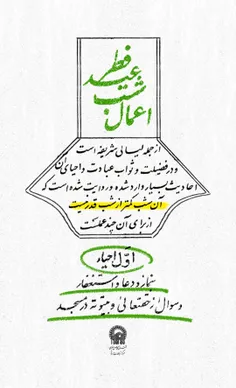 اعمال شب
عید فطر
از جمله لیالی شریفه است
و در فضیلت و ثواب عبادت و احیای آن
احادیث بسیار وارد شده و روایت شده است که
آن شب کمتر از شب قدر نیست
از برای آن چند عمل است
اوّل احیاء
بنماز و دعا و استغفار
و سوال از حقتعالی و بیتوته در مسجد